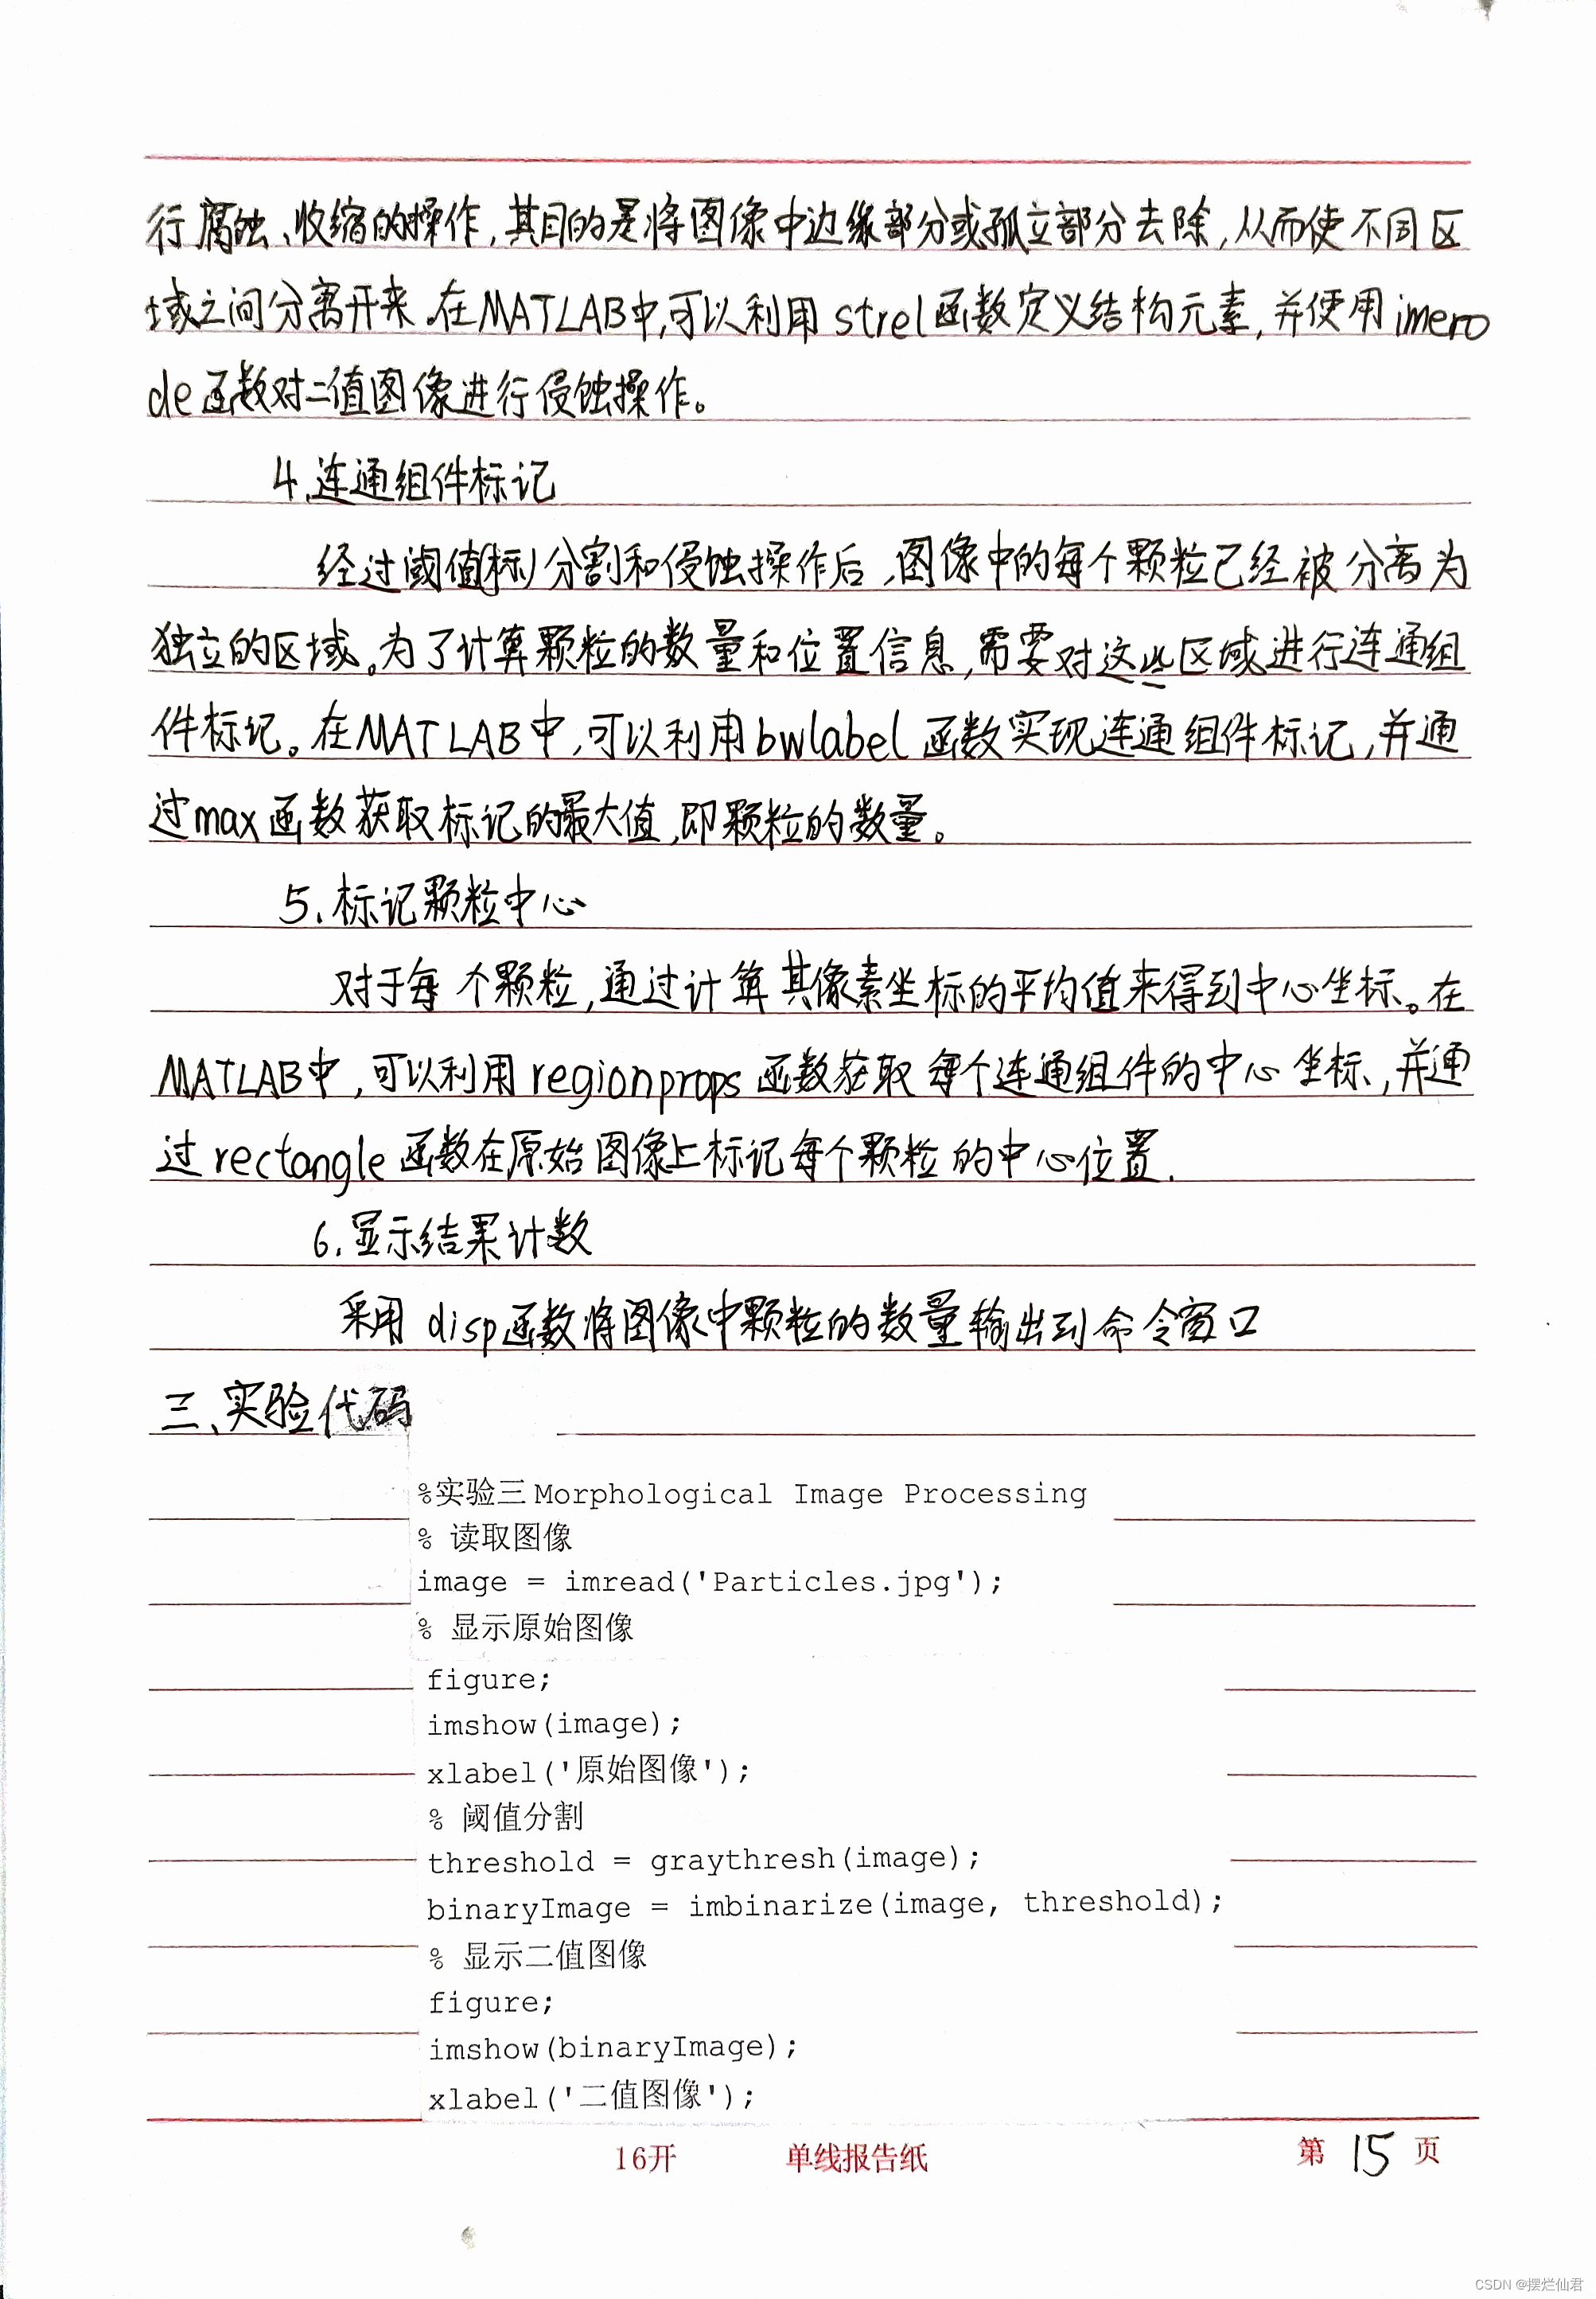 行腐蚀、收缩的操作,其目的是将图像中边缘部分或孤立部分去除,从而使不同区
域之间分离开来.在MATLAB中,可以利用strel函数定义结构元素,并使用imero
de函数对二值图像进行侵蚀操作。
4.连通组件标记
经过阈值(标)分割和侵蚀操作后,图像中的每个颗粒已经被分离为
独立的区域。为了计算颗粒的数量和位置信息,需要对这些区域进行连通组
件标记。在MATLAB中,可以利用bwlabel函数实现连通组件标记,并通
过max函数获取标记的最大值,即颗粒的数量。
5.标记颗粒中心
对于每个颗粒,通过计算其像素坐标的平均值来得到中心坐标。在
MATLAB中,可以利用regionprops函数获取每个连通组件的中心坐标,并通
过rectangle函数在原始图像上标记每个颗粒的中心位置.
6.显示结果计数
采用disp函数将图像中颗粒的数量输出到命令窗口
三、实验代码
%实验三Morphological Image Processing
% 读取图像
image = imread('Particles.jpg');
% 显示原始图像
figure;
imshow(image);
xlabel('原始图像');
% 阈值分割
threshold = graythresh(image);
binaryImage = imbinarize(image, threshold);
% 显示二值图像
figure;
imshow(binaryImage);
xlabel('二值图像');
16开 单线报告纸 第 15 页
CSDN @摆烂仙君